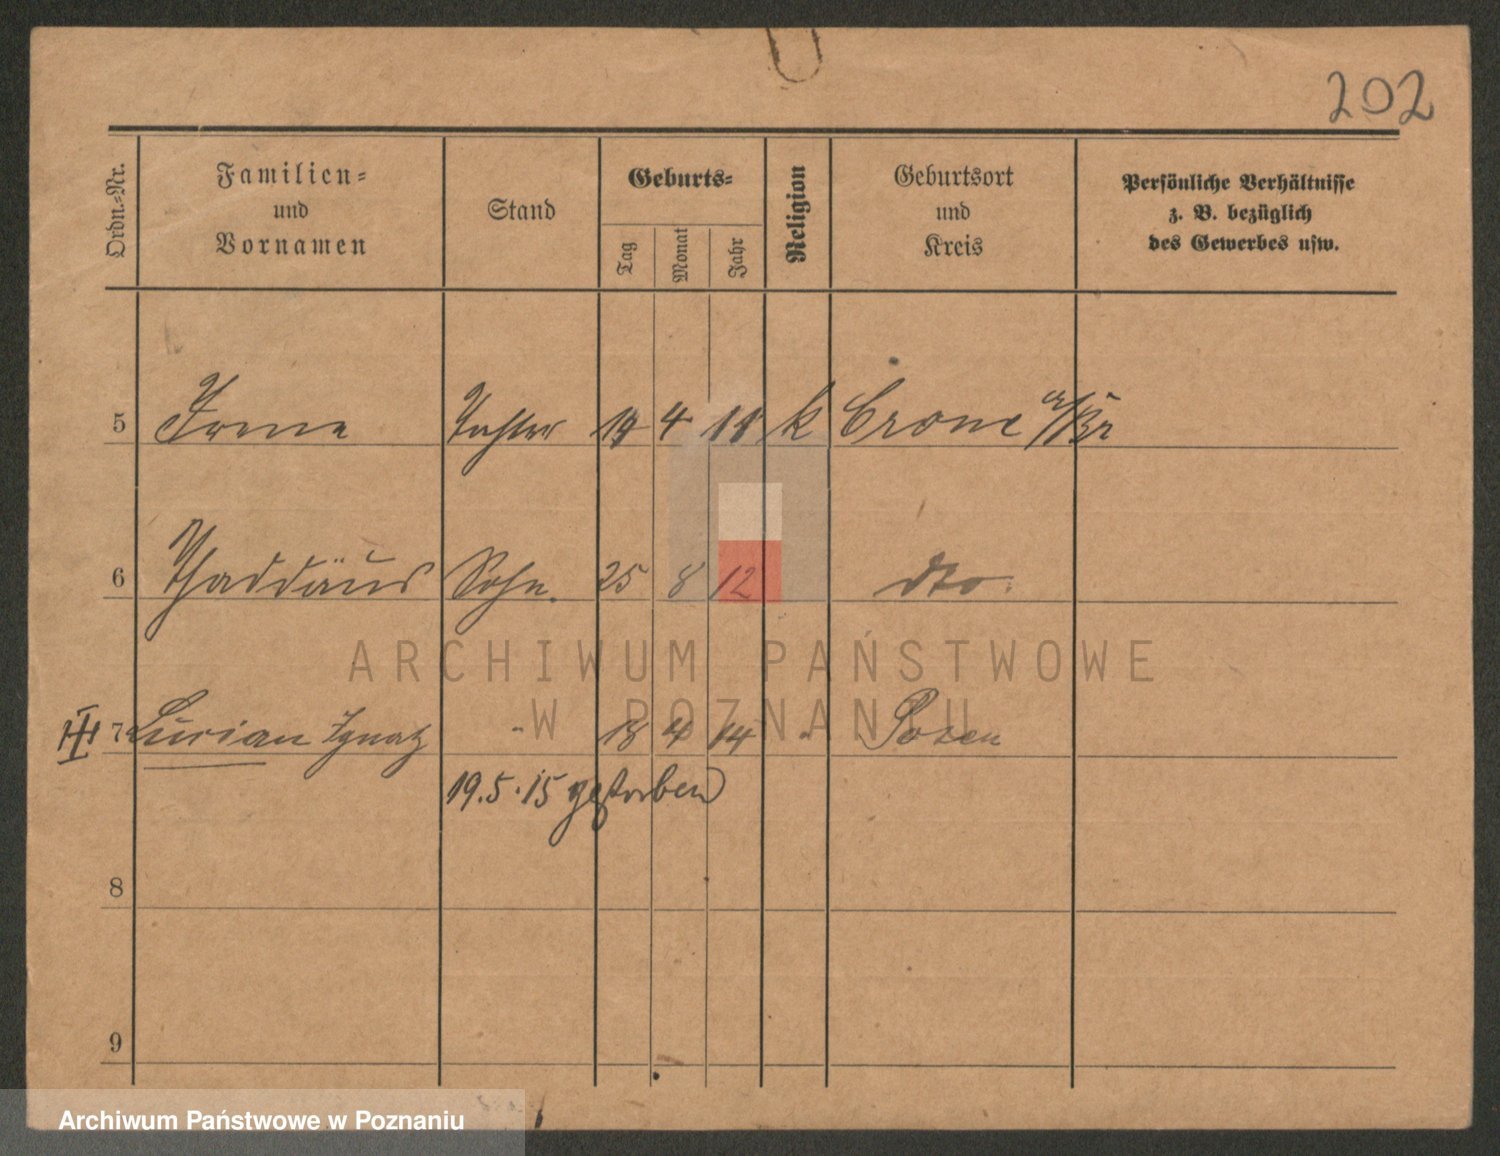 202
Ordn.-Nr.
Familien-
und
Vornamen
Stand
Geburts-
Tag
Monat
Jahr
Religion
Geburtsort
und
Kreis
Persönliche Verhältnisse
z. B. bezüglich
des Gewerbes usw.
5 Irene Tochter 4 11 k Crone a/Br
6 Thaddäus Sohn. 25 8 12 dto.
ARCHIWUM PAŃSTWOWE
W POZNANIU
7 Lucian Ignatz " 18 4 14 " Posen
19.5.15 gestorben
8
9
Archiwum Państwowe w Poznaniu